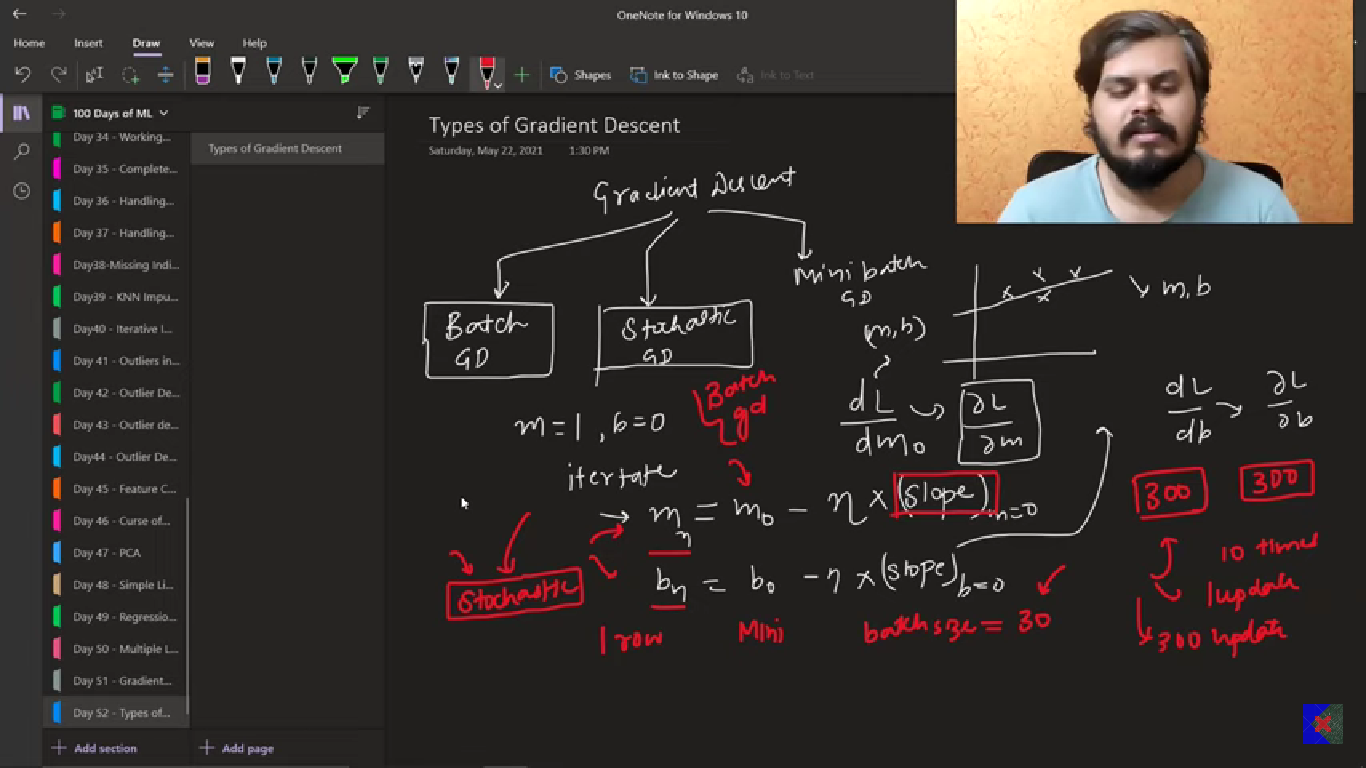 OneNote for Windows 10
Home Insert Draw View Help
Shapes Ink to Shape Ink to Text
100 Days of ML
Day 34 - Working...
Day 35 - Complete...
Day 36 - Handling...
Day 37 - Handling...
Day38-Missing Indi...
Day39 - KNN Impu...
Day40 - Iterative I...
Day 41 - Outliers in...
Day 42 - Outlier De...
Day 43 - Outlier de...
Day44 - Outlier De...
Day 45 - Feature C...
Day 46 - Curse of...
Day 47 - PCA
Day 48 - Simple Li...
Day 49 - Regressio...
Day 50 - Multiple L...
Day 51 - Gradient...
Day 52 - Types of...
Add section
Types of Gradient Descent
Add page
Types of Gradient Descent
Saturday, May 22, 2021 1:30 PM
Gradient Descent
Batch
GD
Stochastic
GD
Mini batch
GD
m, b
(m, b)
m=1, b=0
Batch
gd
dL
dm₀
∂L
∂m
dL
db
∂L
∂b
itertate
m = m₀ - η × (slope) m=0
n
bₙ = b₀ - η × (slope) b=0
300 300
Stochastic
1 row
Mini
batch size = 30
10 times
1 update
300 update